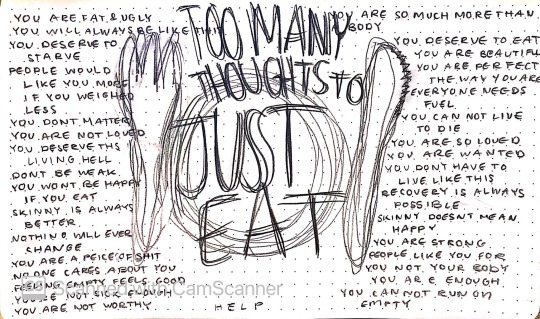 YOU ARE FAT & UGLY
YOU WILL ALWAYS BE LIKE THIS
YOU DESERVE TO
STARVE
PEOPLE WOULD
LIKE YOU MORE
IF YOU WEIGHED
LESS
YOU DONT MATTER
YOU ARE NOT LOVED
YOU DESERVE THS
LIVING HELL
DONT BE WEAK
YOU WONT BE HAPPY
IF YOU EAT
SKINNY IS ALWAYS
BETTER
NOTHING WILL EVER
CHANGE
YOU ARE A PEICE OF SHIT
NO ONE CARES ABOUT YOU
FEELING EMPTY FEELS GOOD
YOU'RE NOT SICK ENOUGH
YOU ARE NOT WORTHY
TOO MANY
THOUGHTS TO
JUST
EAT
HELP
YOU ARE SO MUCH MORE THAN
A BODY
YOU DESERVE TO EAT
YOU ARE BEAUTIFUL
YOU ARE PERFECT
THE WAY YOU ARE
EVERYONE NEEDS
FUEL
YOU CAN NOT LIVE
TO DIE
YOU ARE SO LOVED
YOU ARE WANTED
YOU DON'T HAVE TO
LIVE LIKE THIS
RECOVERY IS ALWAYS
POSSIBLE
SKINNY DOESNT MEAN
HAPPY
YOU ARE STRONG
PEOPLE LIKE YOU FOR
YOU NOT YOUR BODY
YOU ARE ENOUGH
YOU CAN NOT RUN ON
EMPTY
Scanned with CamScanner